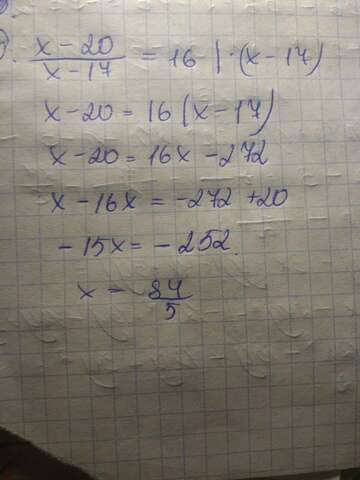 x - 20 / x - 17 = 16 | · (x - 17)
x - 20 = 16 (x - 17)
x - 20 = 16x - 272
x - 16x = -272 + 20
- 15x = - 252.
x = 84 / 5